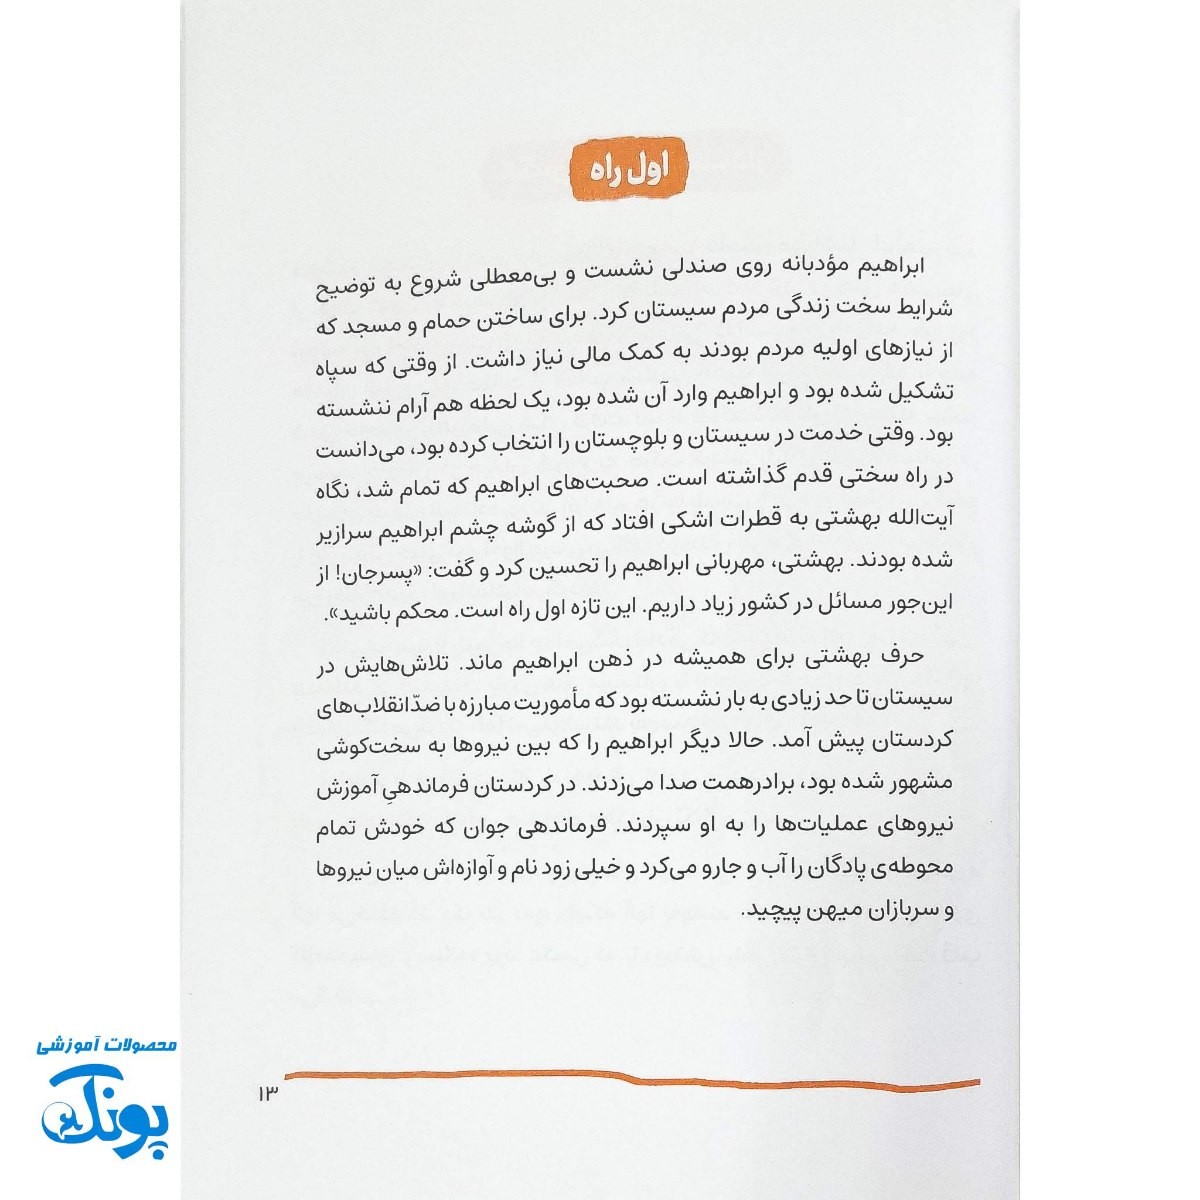 اول راه
ابراهیم مؤدبانه روی صندلی نشست و بی‌معطلی شروع به توضیح
شرایط سخت زندگی مردم سیستان کرد. برای ساختن حمام و مسجد که
از نیازهای اولیه مردم بودند به کمک مالی نیاز داشت. از وقتی که سپاه
تشکیل شده بود و ابراهیم وارد آن شده بود، یک لحظه هم آرام ننشسته
بود. وقتی خدمت در سیستان و بلوچستان را انتخاب کرده بود، می‌دانست
در راه سختی قدم گذاشته است. صحبت‌های ابراهیم که تمام شد، نگاه
آیت‌الله بهشتی به قطرات اشکی افتاد که از گوشه چشم ابراهیم سرازیر
شده بودند. بهشتی، مهربانی ابراهیم را تحسین کرد و گفت: «پسرجان! از
این‌جور مسائل در کشور زیاد داریم. این تازه اول راه است. محکم باشید».
حرف بهشتی برای همیشه در ذهن ابراهیم ماند. تلاش‌هایش در
سیستان تا حد زیادی به بار نشسته بود که مأموریت مبارزه با ضدّانقلاب‌های
کردستان پیش آمد. حالا دیگر ابراهیم را که بین نیروها به سخت‌کوشی
مشهور شده بود، برادرهمت صدا می‌زدند. در کردستان فرماندهیِ آموزش
نیروهای عملیات‌ها را به او سپردند. فرماندهی جوان که خودش تمام
محوطه‌ی پادگان را آب و جارو می‌کرد و خیلی زود نام و آوازه‌اش میان نیروها
و سربازان میهن پیچید.
۱۳
محصولات آموزشی
پونک